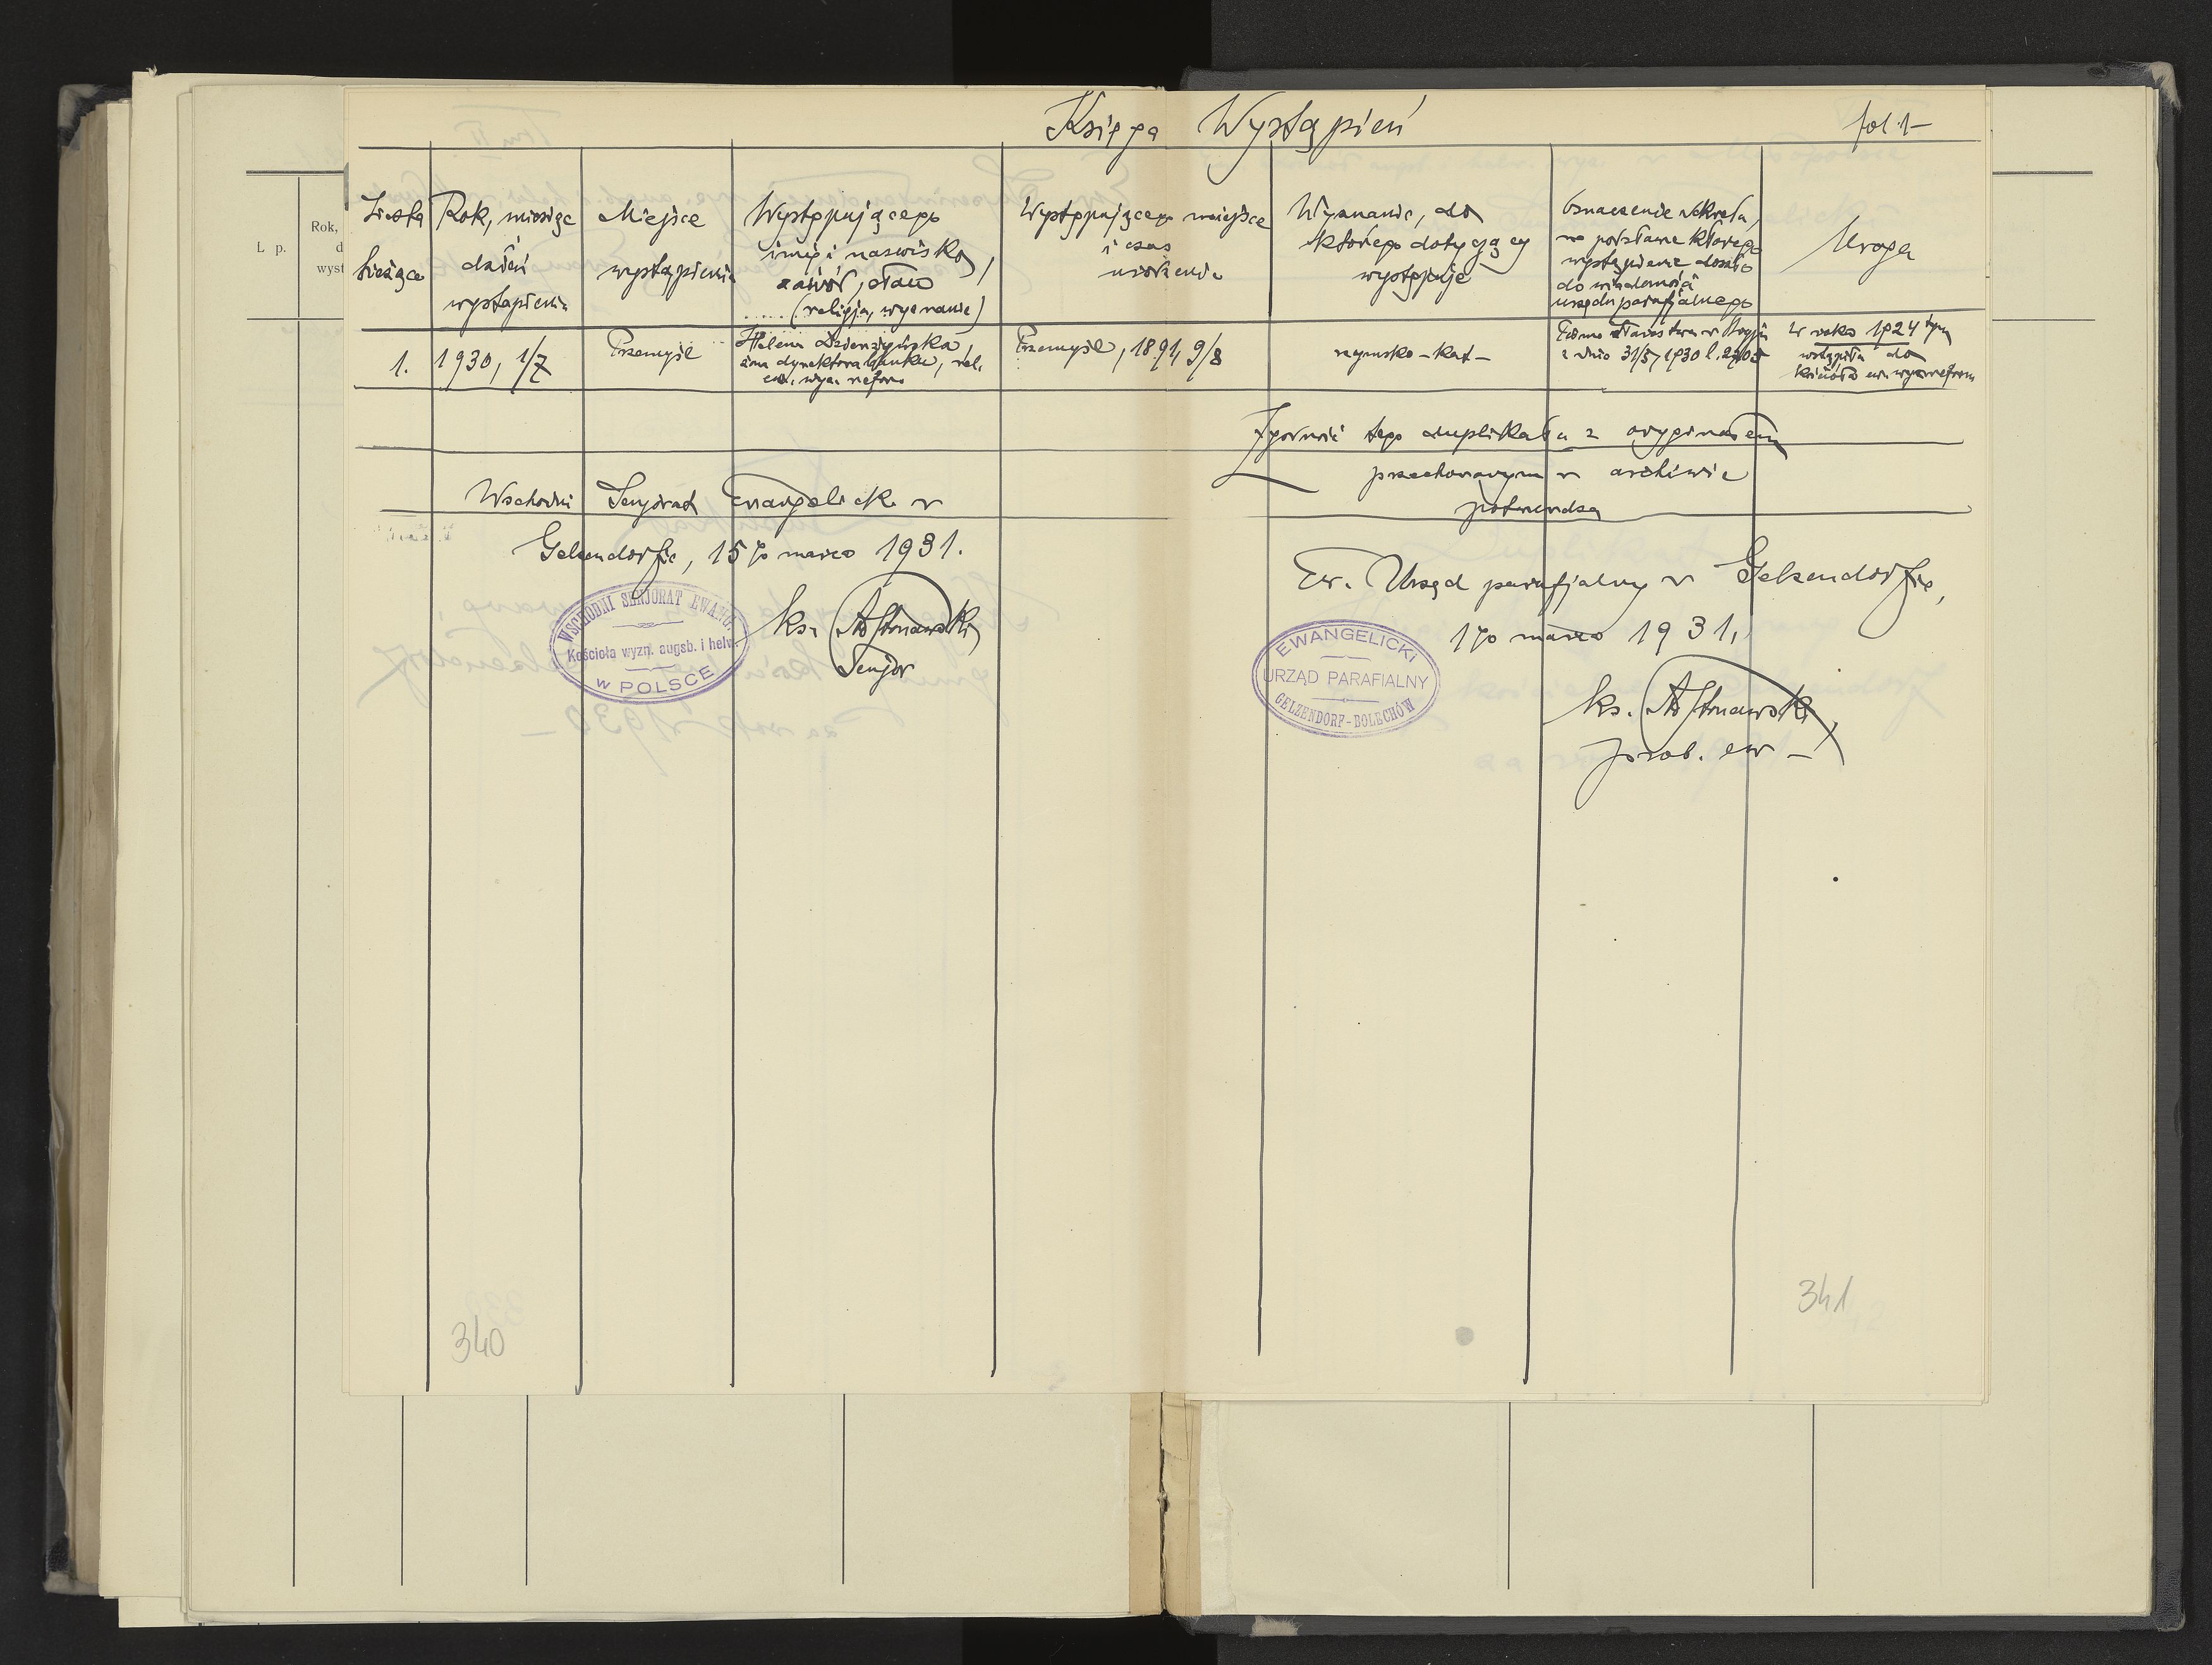 Księga Wystąpień
fol. 1-
L p.
Rok,
d
wyst
Liczba
bieżąca
Rok, miesiąc
dzień
wystąpienia
Miejsce
wystąpienia
Występującego
imię i nazwisko,
zawód, stan
..... (religja, wyznanie)
Występującego miejsce
i czas
urodzenia
Wyznanie, do
którego dotyczący
występuje
Oznaczenie dekretu,
na podstawie którego
wystąpienie doszło
do wiadomości
urzędu parafjalnego
Uwaga
1.
1930, 1/7
Przemyśl
Helena
żona dyrektora banku, rel.
ew. wyzn. reform.
Przemyśl, 1891, 9/8
rzymsko-kat-
Pismo Starostwa w Stryju
z dnia 31/5 1930 l.
W roku 1924 tym
wstąpiła do
kościoła ew. wyzn. reform
Zgodność tego duplikatu z oryginałem
przechowanym w archiwie
potwierdza
Wschodni Senjorat Ewangelicki w
Gelsendorfie, 15go marca 1931.
WSCHODNI SENJORAT EWANG.
Kościoła wyzn. augsb. i helw.
w POLSCE
ks.
Senjor
Ew. Urząd parafjalny w Gelsendorfie,
1go marca 1931,
EWANGELICKI
URZĄD PARAFIALNY
GELZENDORF-BOLECHÓW
ks.
prob. ew -
340
341